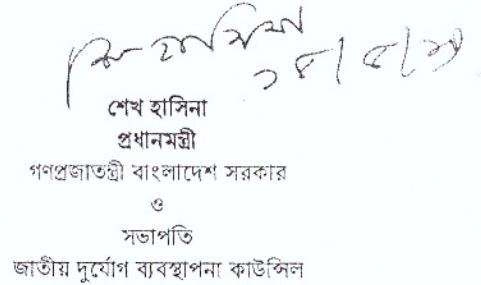 শেখ হাসিনা
প্রধানমন্ত্রী
গণপ্রজাতন্ত্রী বাংলাদেশ সরকার
ও
সভাপতি
জাতীয় দুর্যোগ ব্যবস্থাপনা কাউন্সিল